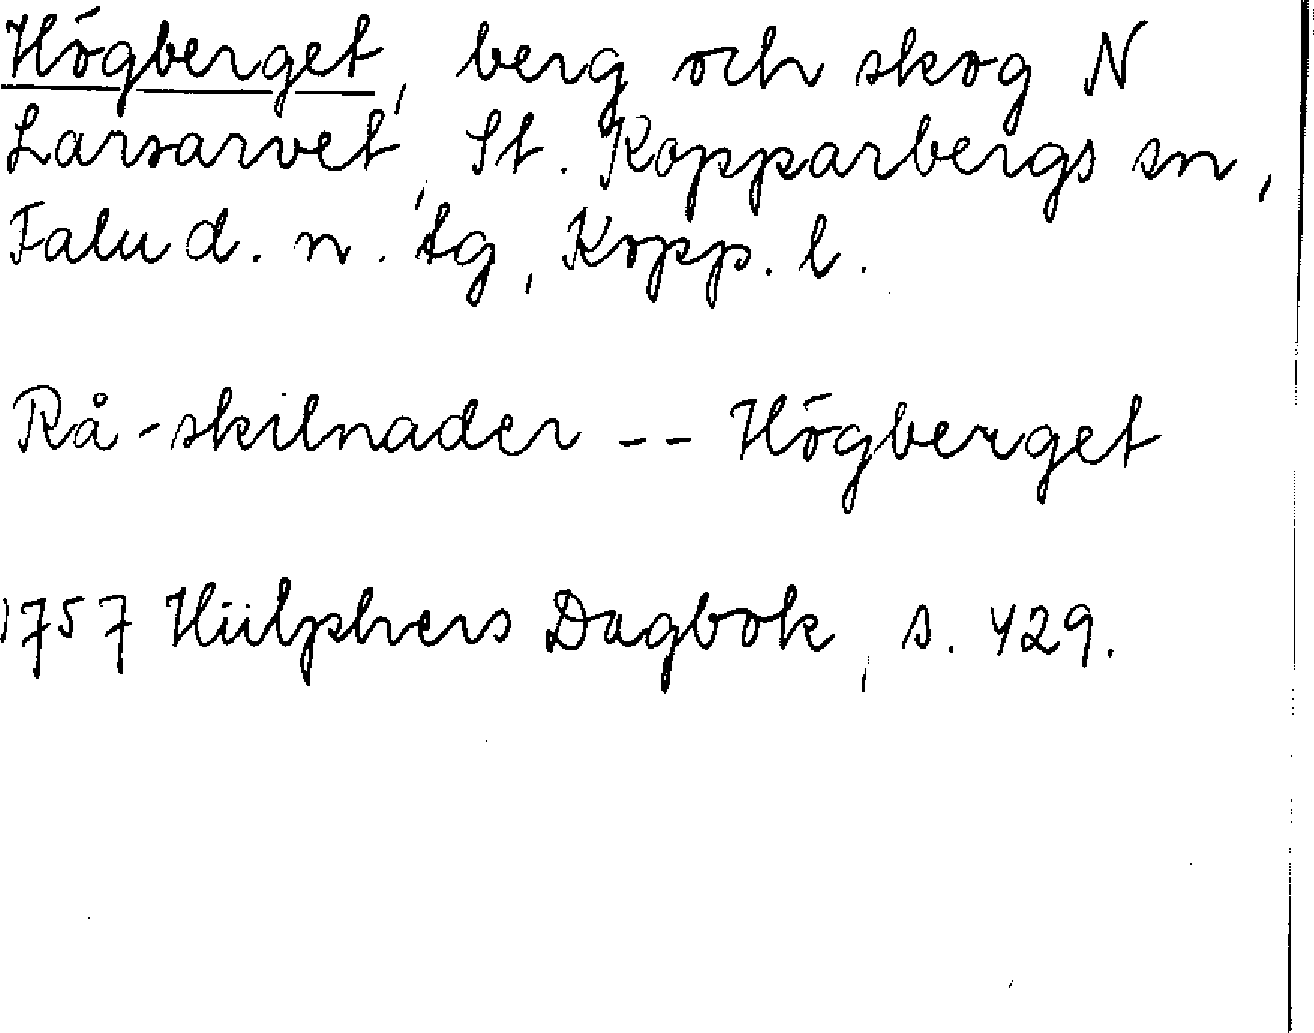 Högberget, berg och skog N
Larsarvet, St. Kopparbergs sn,
Falu d. n. tg, Kopp. l.
Rå-skilnader -- Högberget
1757 Hülphers Dagbok, s. 429.